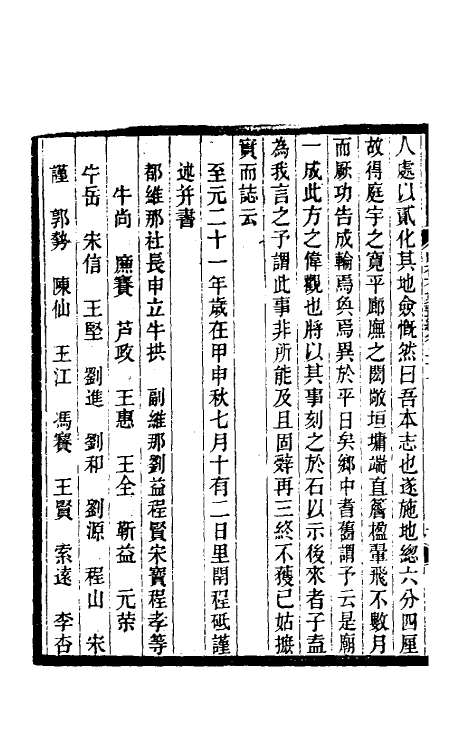 八處以貳化其地僉慨然曰吾本志也遂施地總六分四厘
故得庭宇之寬平廊廡之閎敞垣墉端直簷楹翬飛不數月
而厥功告成輪焉奐焉異於平日矣鄉中耆舊謂予云是廟
一成此方之偉觀也將以其事刻之於石以示後來者子盍
為我言之予謂此事非所能及且固辭再三終不獲已姑摭
實而誌云
至元二十一年歲在甲申秋七月十有二日里閈程砥謹
述并書
都維那社長申立牛拱 副維那劉益程賢宋寶程孝等
牛尚 廉賽 芦政 王惠 王全 靳益 元荣
牛岳 宋信 王堅 劉進 劉和 劉源 程山 宋
謹 郭勢 陳仙 王江 馮賽 王賢 索遠 李杏